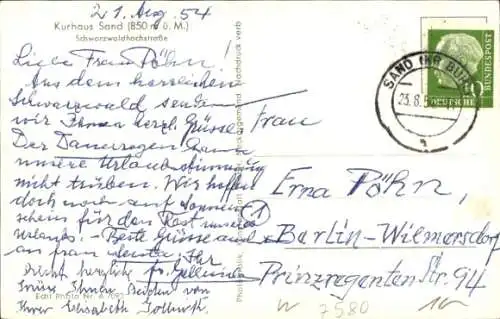 21. Aug. 54
Kurhaus Sand (850 m ü. M.)
Schwarzwaldhochstraße
Liebe Frau Pöhn!
Aus dem herrlichen
Schwarzwald senden
wir Ihnen herzl. Grüsse.
Der Dauerregen kann
unsere Urlaubsstimmung
nicht trüben. Wir hoffen
doch noch auf Sonnen-
schein für den Rest unseres
Urlaubes. - Beste Grüsse auch
an Frau Ihr
Recht herzliche
Grüsse Ihnen Beiden von
Ihrer Elisabeth
Echt Photo Nr.
Nachdruck verb
SAND (KR BÜHL
23.8.5
a
10
DEUTSCHE
BUNDESPOST
Frau
Erna Pöhn,
1
Berlin-Wilmersdorf
Prinzregenten Str. 94
W 7580